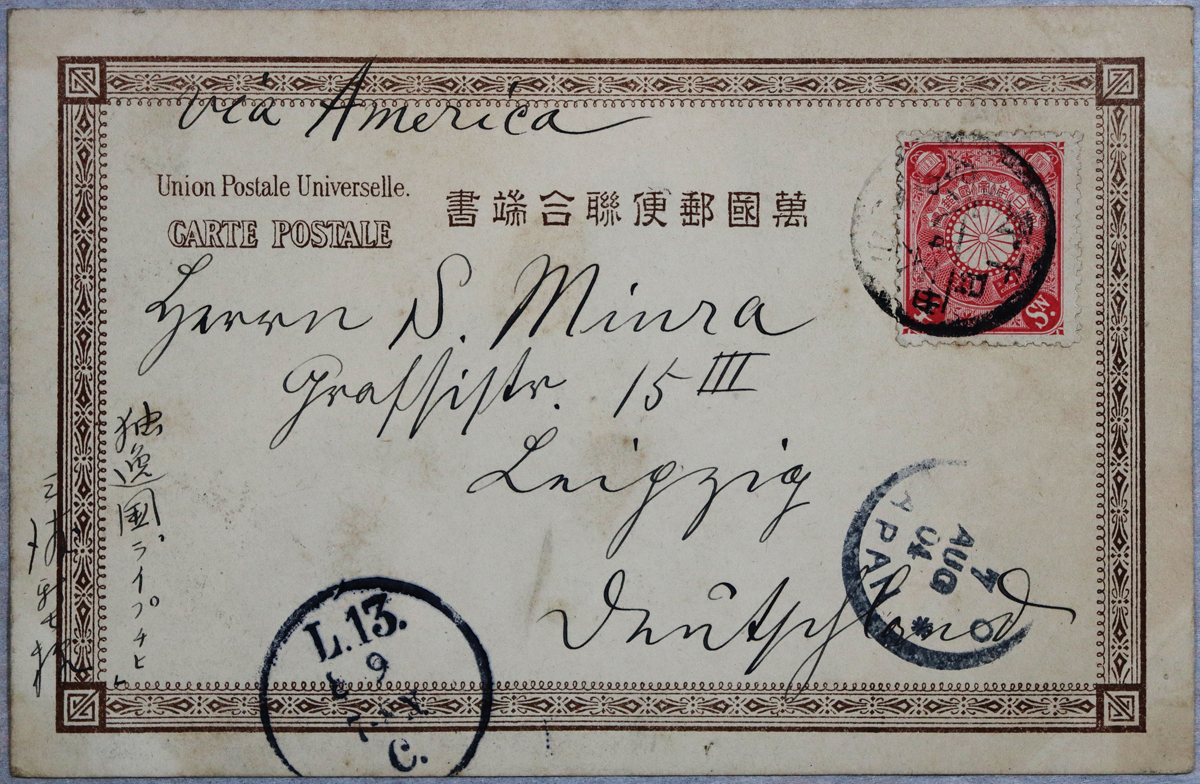 via America
Union Postale Universelle.
CARTE POSTALE
書端合聯便郵國萬
Herrn S. Miura
Grassistr. 15 III
Leipzig
Deutschland
独逸國ライプチヒ
三浦
7
AUG
04
APAN
L.13.
9
C.
Sɴ.